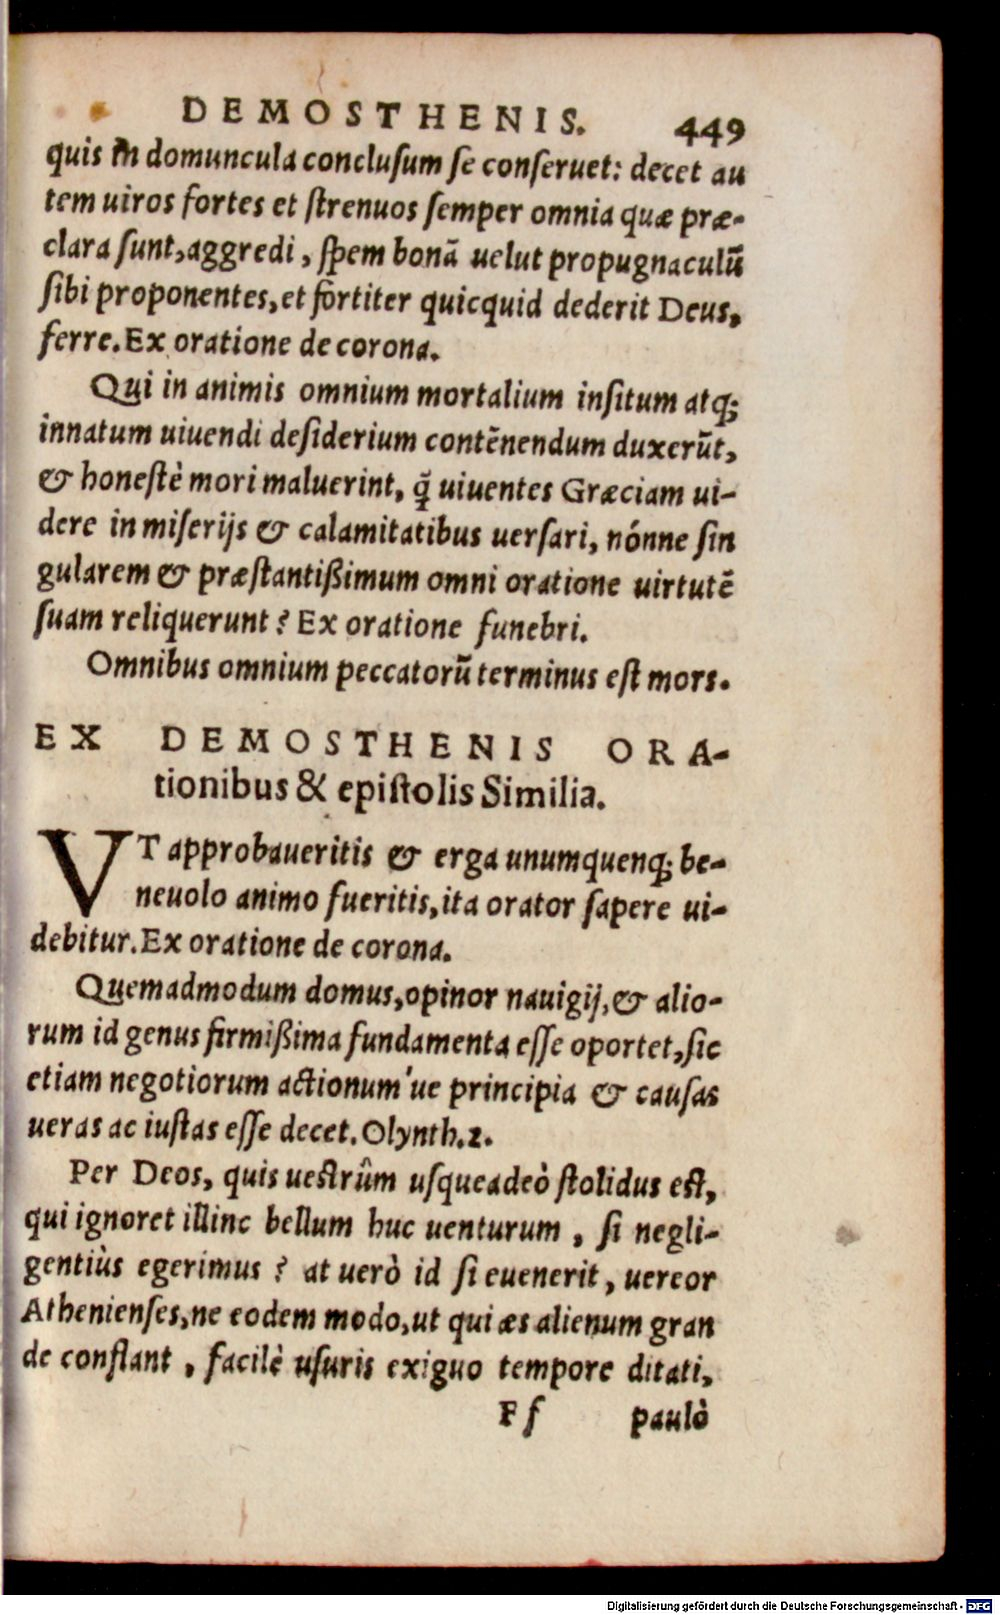 DEMOSTHENIS. 449
quis in domuncula conclusum se conseruet: decet au
tem uiros fortes et strenuos semper omnia quæ præ-
clara sunt, aggredi, spem bonã uelut propugnaculũ
sibi proponentes, et fortiter quicquid dederit Deus,
ferre. Ex oratione de corona.
Qui in animis omnium mortalium insitum atq;
innatum uiuendi desiderium contẽnendum duxerũt,
& honestè mori maluerint, q̃ uiuentes Græciam ui-
dere in miserijs & calamitatibus uersari, nónne sin
gularem & præstantißimum omni oratione uirtutẽ
suam reliquerunt? Ex oratione funebri.
Omnibus omnium peccatorũ terminus est mors.
EX DEMOSTHENIS ORA-
tionibus & epistolis Similia.
VT approbaueritis & erga unumquenq; be-
neuolo animo fueritis, ita orator sapere ui-
debitur. Ex oratione de corona.
Quemadmodum domus, opinor nauigij, & alio-
rum id genus firmißima fundamenta esse oportet, sic
etiam negotiorum actionum'ue principia & causas
ueras ac iustas esse decet. Olynth. 2.
Per Deos, quis uestrûm usqueadeò stolidus est,
qui ignoret illinc bellum huc uenturum, si negli-
gentiùs egerimus? at uerò id si euenerit, uereor
Athenienses, ne eodem modo, ut qui æs alienum gran
de conflant, facilè usuris exiguo tempore ditati,
Ff paulò
Digitalisierung gefördert durch die Deutsche Forschungsgemeinschaft - DFG